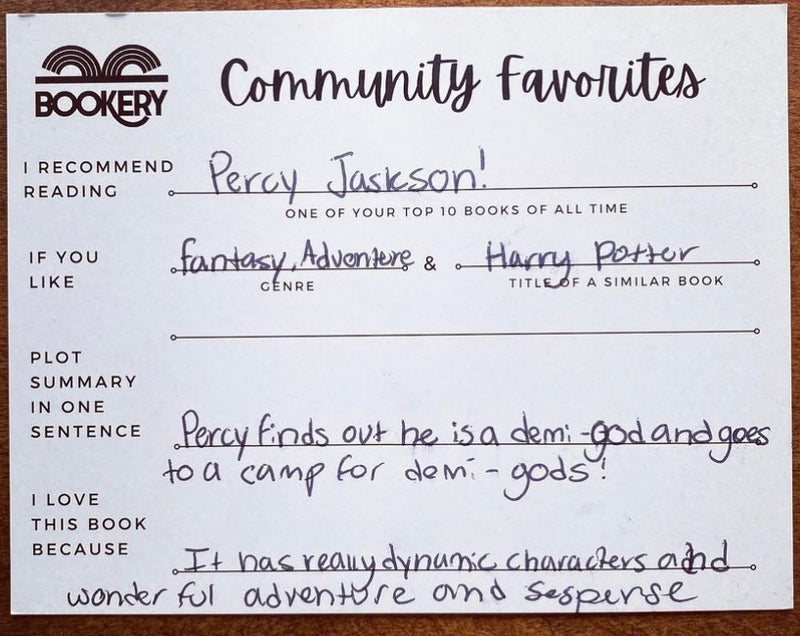 BOOKERY
Community Favorites
I RECOMMEND
READING
Percy Jaskson!
ONE OF YOUR TOP 10 BOOKS OF ALL TIME
IF YOU
LIKE
fantasy, Adventere & Harry Potter
GENRE
TITLE OF A SIMILAR BOOK
PLOT
SUMMARY
IN ONE
SENTENCE
Percy finds out he is a demi-god and goes
to a camp for demi-gods!
I LOVE
THIS BOOK
BECAUSE
It has really dynamic characters and
wonderful adventure and sespense